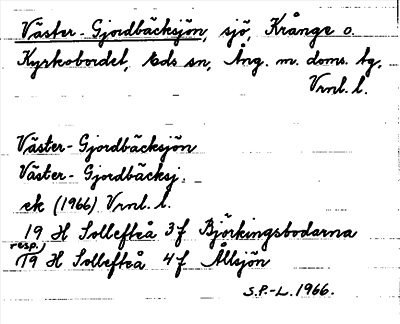 Väster-Gjordbäcksjön, sjö, Krånge o.
Kyrkobordet, Eds sn, Ång. m. doms. tg,
Vrnl. l.
Väster-Gjordbäcksjön
Väster-Gjordbäcksj.
ek (1966) Vrnl. l.
19 H Sollefteå 3 f Björkingsbodarna
resp.
19 H Sollefteå 4 f Ållsjön
S.P.-L. 1966.